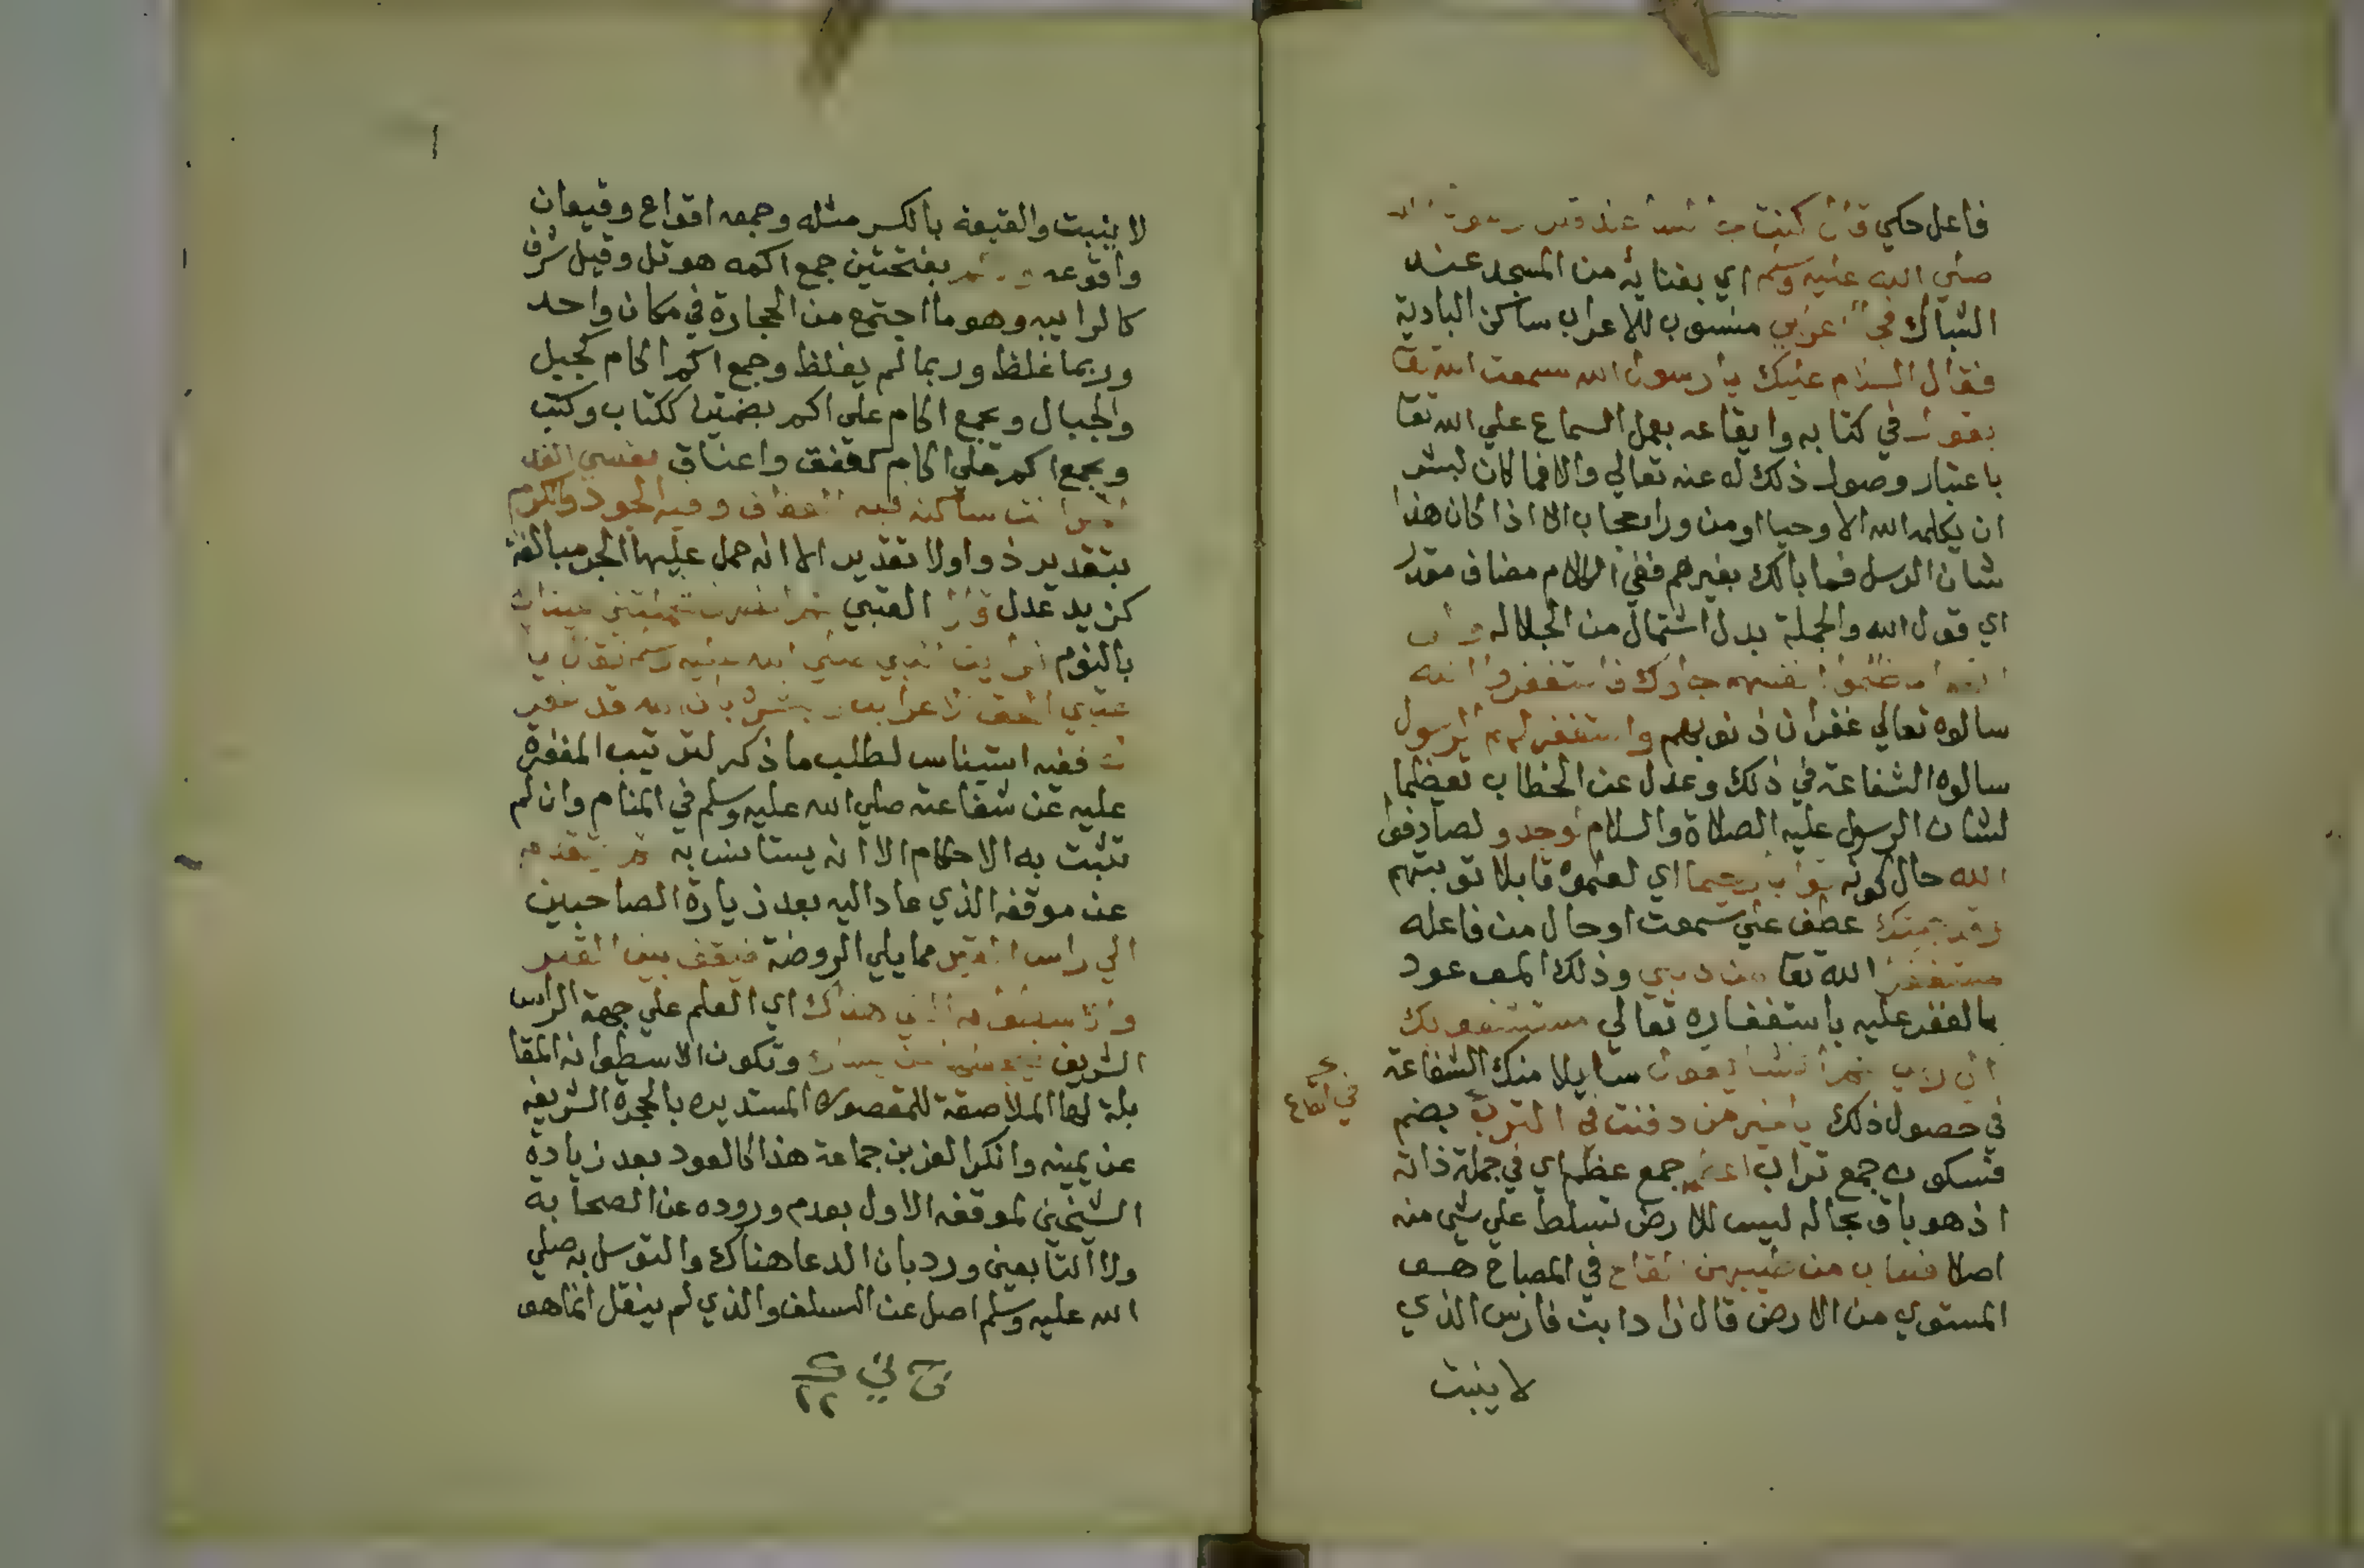 فاعل حكي قال كنت جالسا عند قبر رسول الله
صلي الله عليه وسلم اي بفنايه من المسجد عند
الشباك فجا اعرابي منسوب للاعراب ساكن البادية
فقال السلام عليك يا رسول الله سمعت الله تعا
يقول في كتابه وايقاعه بعمل السماع علي الله تعا
باعتبار وصول ذلك له عنه تعالي والا فما كان لبشر
ان يكلمه الله الا وحيا او من ورا حجاب الا اذا كان هذا
شان الرسل فما بالك بغيرهم ففي الكلام مضاف مقدر
اي قول الله والجملة بدل اشتمال من الجلاله ولو
انهم اذ ظلموا انفسهم جاوك فاستغفروا الله
سالوه تعالي غفران ذنوبهم واستغفر لهم الرسول
سالوه الشفاعة في ذلك وعدل عن الخطاب تعظيما
لشان الرسول عليه الصلاة والسلام لوجدوا لصادفوا
الله حال كونه توابا رحيما اي لعلموه قابلا توبتهم
وقد جيتك عطف علي سمعت او حال من فاعله
مستغفرا الله تعا من ذنبي وذلك الموعود
بالغفر عليه باستغفاره تعالي مستشفعا بك
الي ربي ثم انشا يقول سايلا منك الشفاعة
في حصول ذلك يا خير من دفنت في الترب بضم
فسكون جمع تراب اعظمه جمع عظم اي في جملة ذاته
اذ هو باق بحاله ليس للارض تسلط علي شي منه
اصلا فطاب من طيبهن القاع في المصباح هو
المستوي من الارض قال زاد ابن فارس الذي
لا ينبت
في القاع
لا ينبت والقيعة بالكسر مثله وجمعه اقواع وقيعان
واقوعه والاكم بفتحتين جمع اكمه هو تل وقيل شرف
كالرابيه وهو ما اجتمع من الحجارة في مكان واحد
وربما غلظ وربما لم يغلظ وجمع اكم اكام كجبل
والجبال وجمع اكام علي اكم بضمتين ككتاب وكتب
وجمع اكم علي اكام كعنق واعناق نفسي الفدا
لقبر انت ساكنه فيه العفاف وفيه الجود والكرم
بتقدير ذو اولا تقدير الا انه حمل عليها الجر مبالغة
كزيد عدل قال العتبي ثم انصرف فحملتني عيناي
بالنوم فرايت النبي صلي الله عليه وسلم فقال يا
عتبي الحق الاعرابي وبشره بان الله قد غفر
له ففيه استيناس لطلب ما ذكر لترتيب المغفرة
عليه عن شفاعته صلي الله عليه وسلم في المنام وان لم
تثبت به الاحكام الا انه يستانس به ثم يتقدم
عن موقفه الذي عاد اليه بعد زيارة الصاحبين
الي راس القبر مما يلي الروضة فيقف بين القبر
والاسطوانه التي هناك اي العلم علي جهة الراس
الشريف وتكون الاسطوانه المقا
بلة لها الملاصقة للمقصوره المستديره بالحجرة الشريفه
عن يمينه وانكر العز بن جماعة هذا كالعود بعد زيادة
الشيخين لموقفه الاول بعدم وروده عن الصحابه
ولا التابعين ورد بان الدعا هناك والتوسل به صلي
الله عليه وسلم اصل عن السلف والذي لم ينقل انما هو